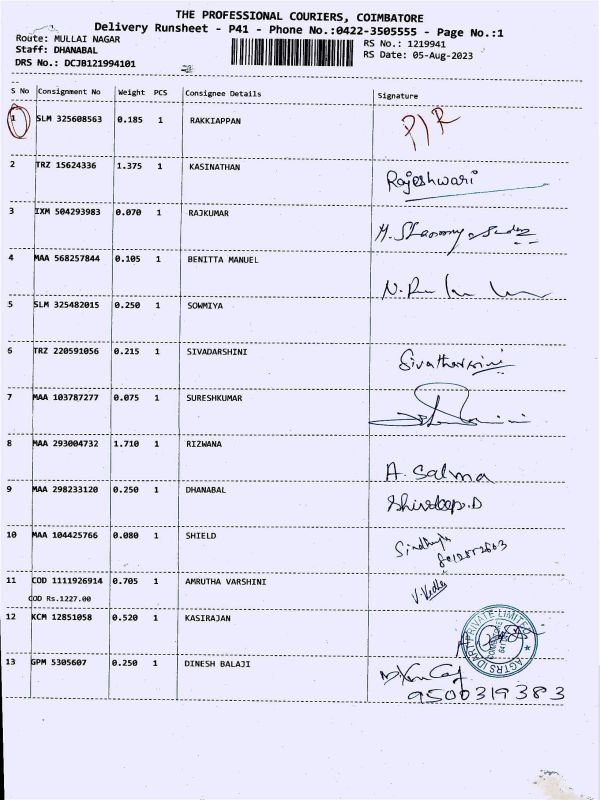 THE PROFESSIONAL COURIERS, COIMBATORE
Delivery Runsheet - P41 - Phone No.:0422-3505555 - Page No.:1
Route: MULLAI NAGAR RS No.: 1219941
Staff: DHANABAL RS Date: 05-Aug-2023
DRS No.: DCJB121994101
S No Consignment No Weight PCS Consignee Details Signature
1 SLM 325608563 0.185 1 RAKKIAPPAN P/R
2 TRZ 15624336 1.375 1 KASINATHAN Rajeshwari
3 IXM 504293983 0.070 1 RAJKUMAR
4 MAA 568257844 0.105 1 BENITTA MANUEL
5 SLM 325482015 0.250 1 SOWMIYA
6 TRZ 220591056 0.215 1 SIVADARSHINI Sivatharsini
7 MAA 103787277 0.075 1 SURESHKUMAR
8 MAA 293004732 1.710 1 RIZWANA A. Salma
9 MAA 298233120 0.250 1 DHANABAL Shivdeep.D
10 MAA 104425766 0.080 1 SHIELD
11 COD 1111926914 0.705 1 AMRUTHA VARSHINI
COD Rs.1227.00
12 KCM 12851058 0.520 1 KASIRAJAN
PRIVATE LIMITED
13 GPM 5305607 0.250 1 DINESH BALAJI
9500319383